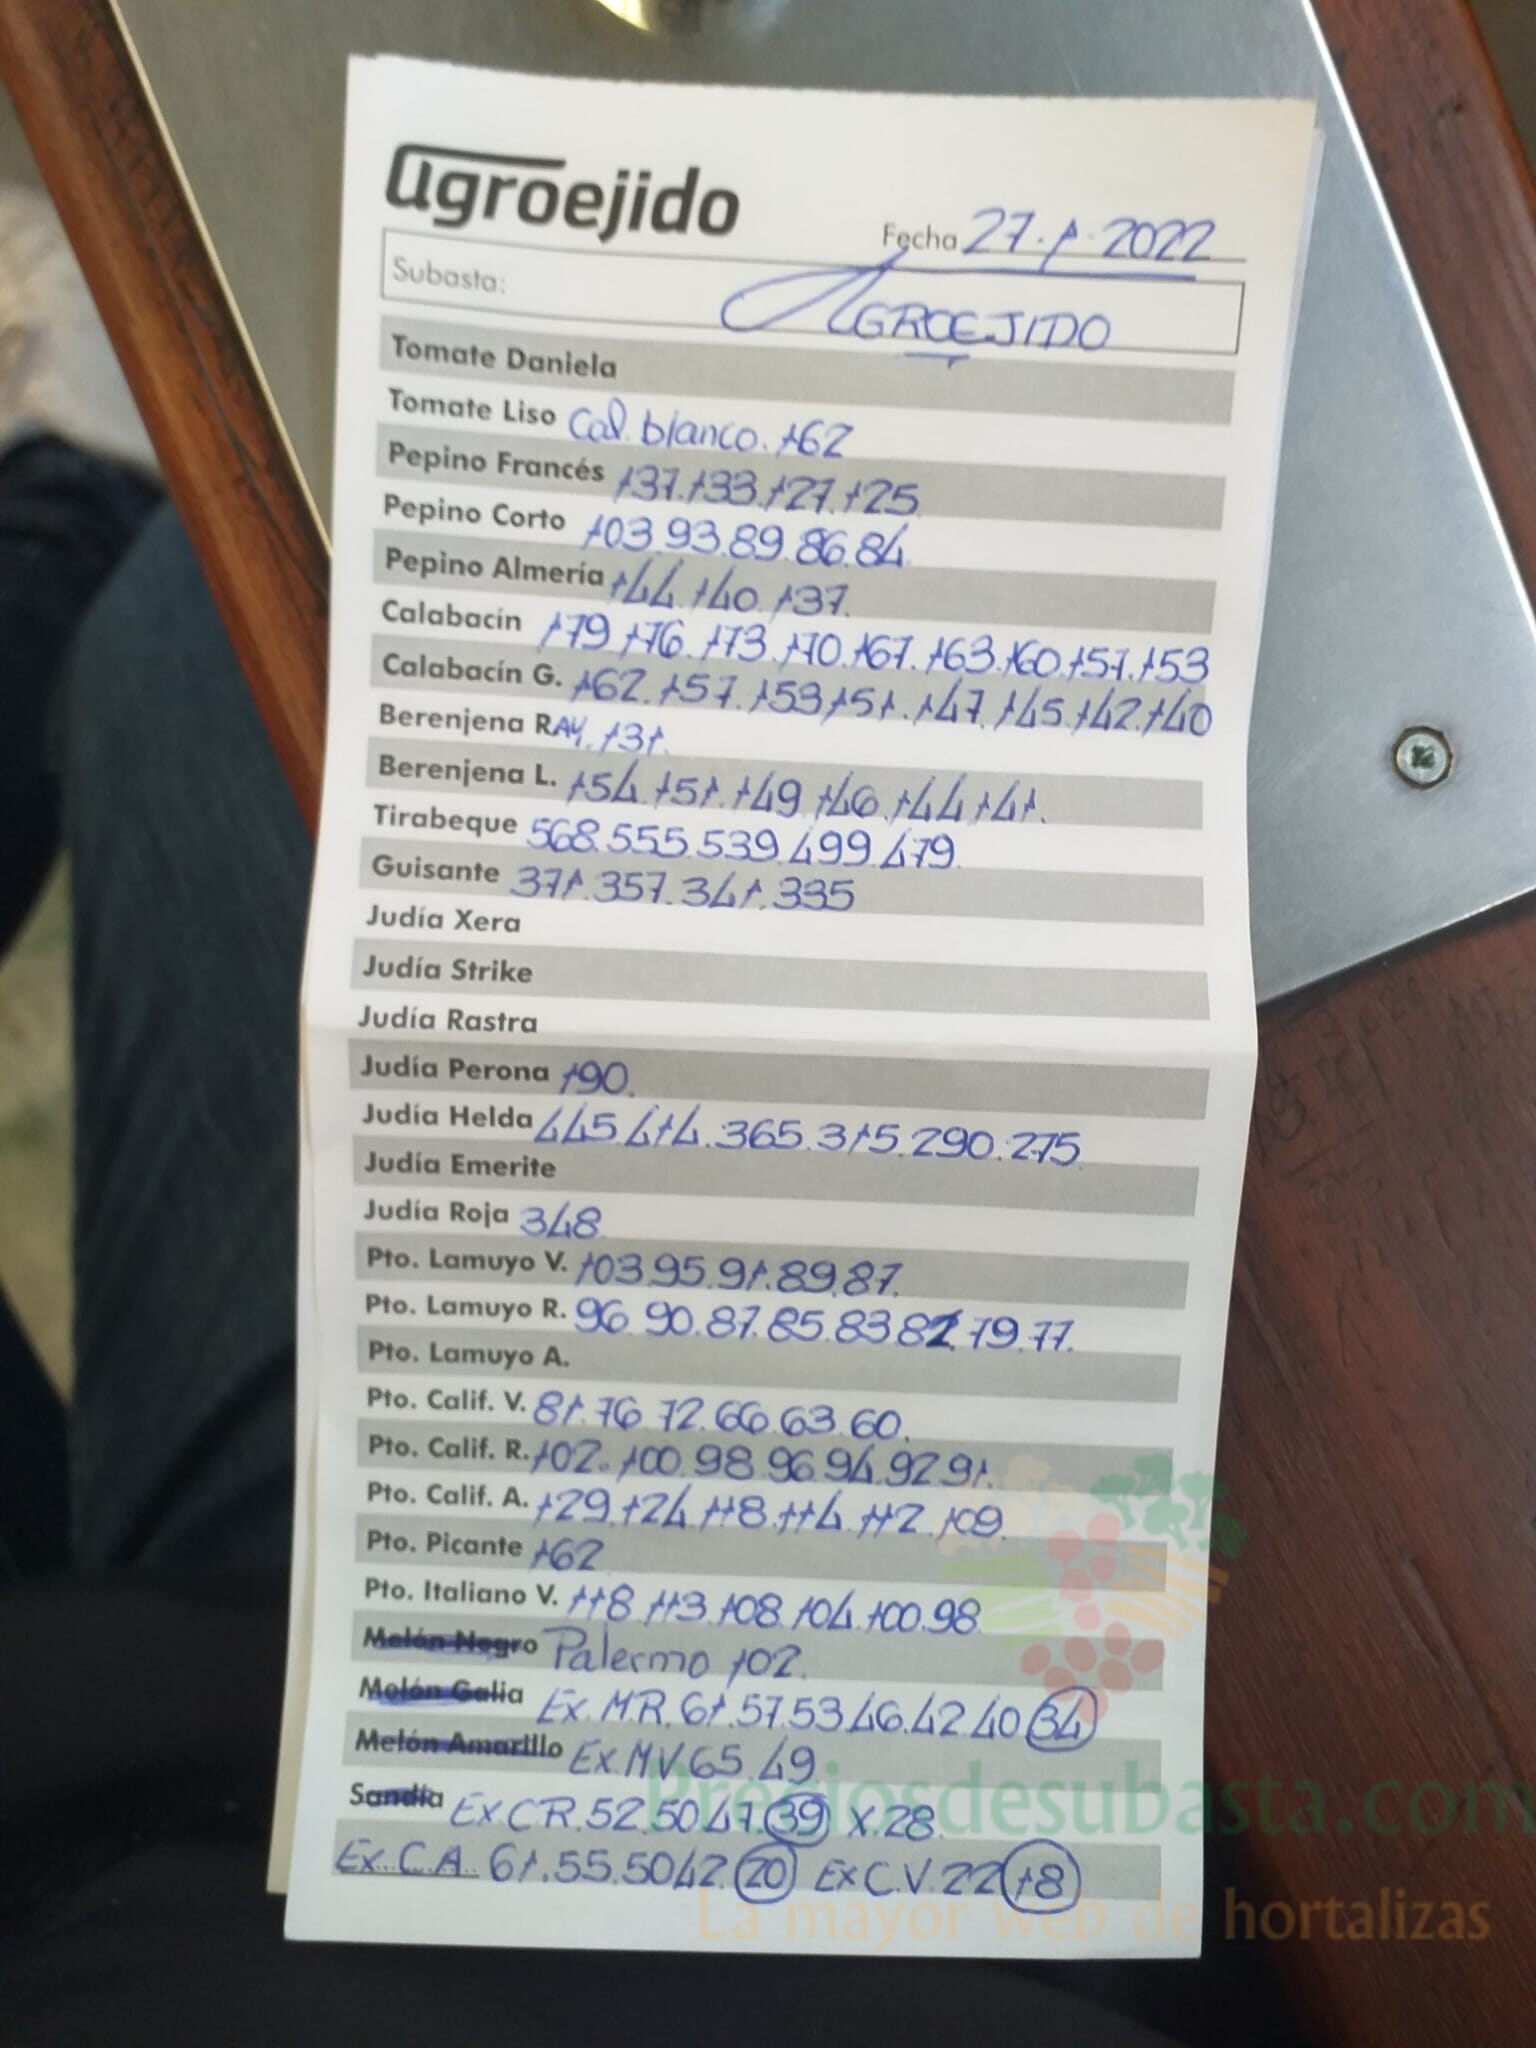 agroejido
Fecha 27.1.2022
Subasta: AGROEJIDO
Tomate Daniela
Tomate Liso Cal. blanco. 162
Pepino Francés 137.133.127.125
Pepino Corto 103.93.89.86.84.
Pepino Almería 144.140.137.
Calabacín 179.176.173.170.167.163.160.157.153
Calabacín G. 162.157.153.151.147.145.142.140
Berenjena RAY. 131.
Berenjena L. 154.151.149.146.144.141.
Tirabeque 568.555.539.499.479.
Guisante 371.357.341.335
Judía Xera
Judía Strike
Judía Rastra
Judía Perona 190.
Judía Helda 445.414.365.315.290.275
Judía Emerite
Judía Roja 348
Pto. Lamuyo V. 103.95.91.89.87.
Pto. Lamuyo R. 96.90.87.85.83.82.79.77.
Pto. Lamuyo A.
Pto. Calif. V. 81.76.72.66.63.60.
Pto. Calif. R. 102.100.98.96.94.92.91.
Pto. Calif. A. 129.124.118.114.112.109.
Pto. Picante 162
Pto. Italiano V. 118.113.108.104.100.98
Melón Negro Palermo 102.
Melón Galia Ex.M.R. 61.57.53.46.42.40 34
Melón Amarillo Ex.M.V. 65.49
Sandía Ex.C.R. 52.50.47. 39 X.28.
Ex.C.A. 61.55.50.42. 20 Ex C.V. 22 18
Preciosdesubasta.com
La mayor web de hortalizas